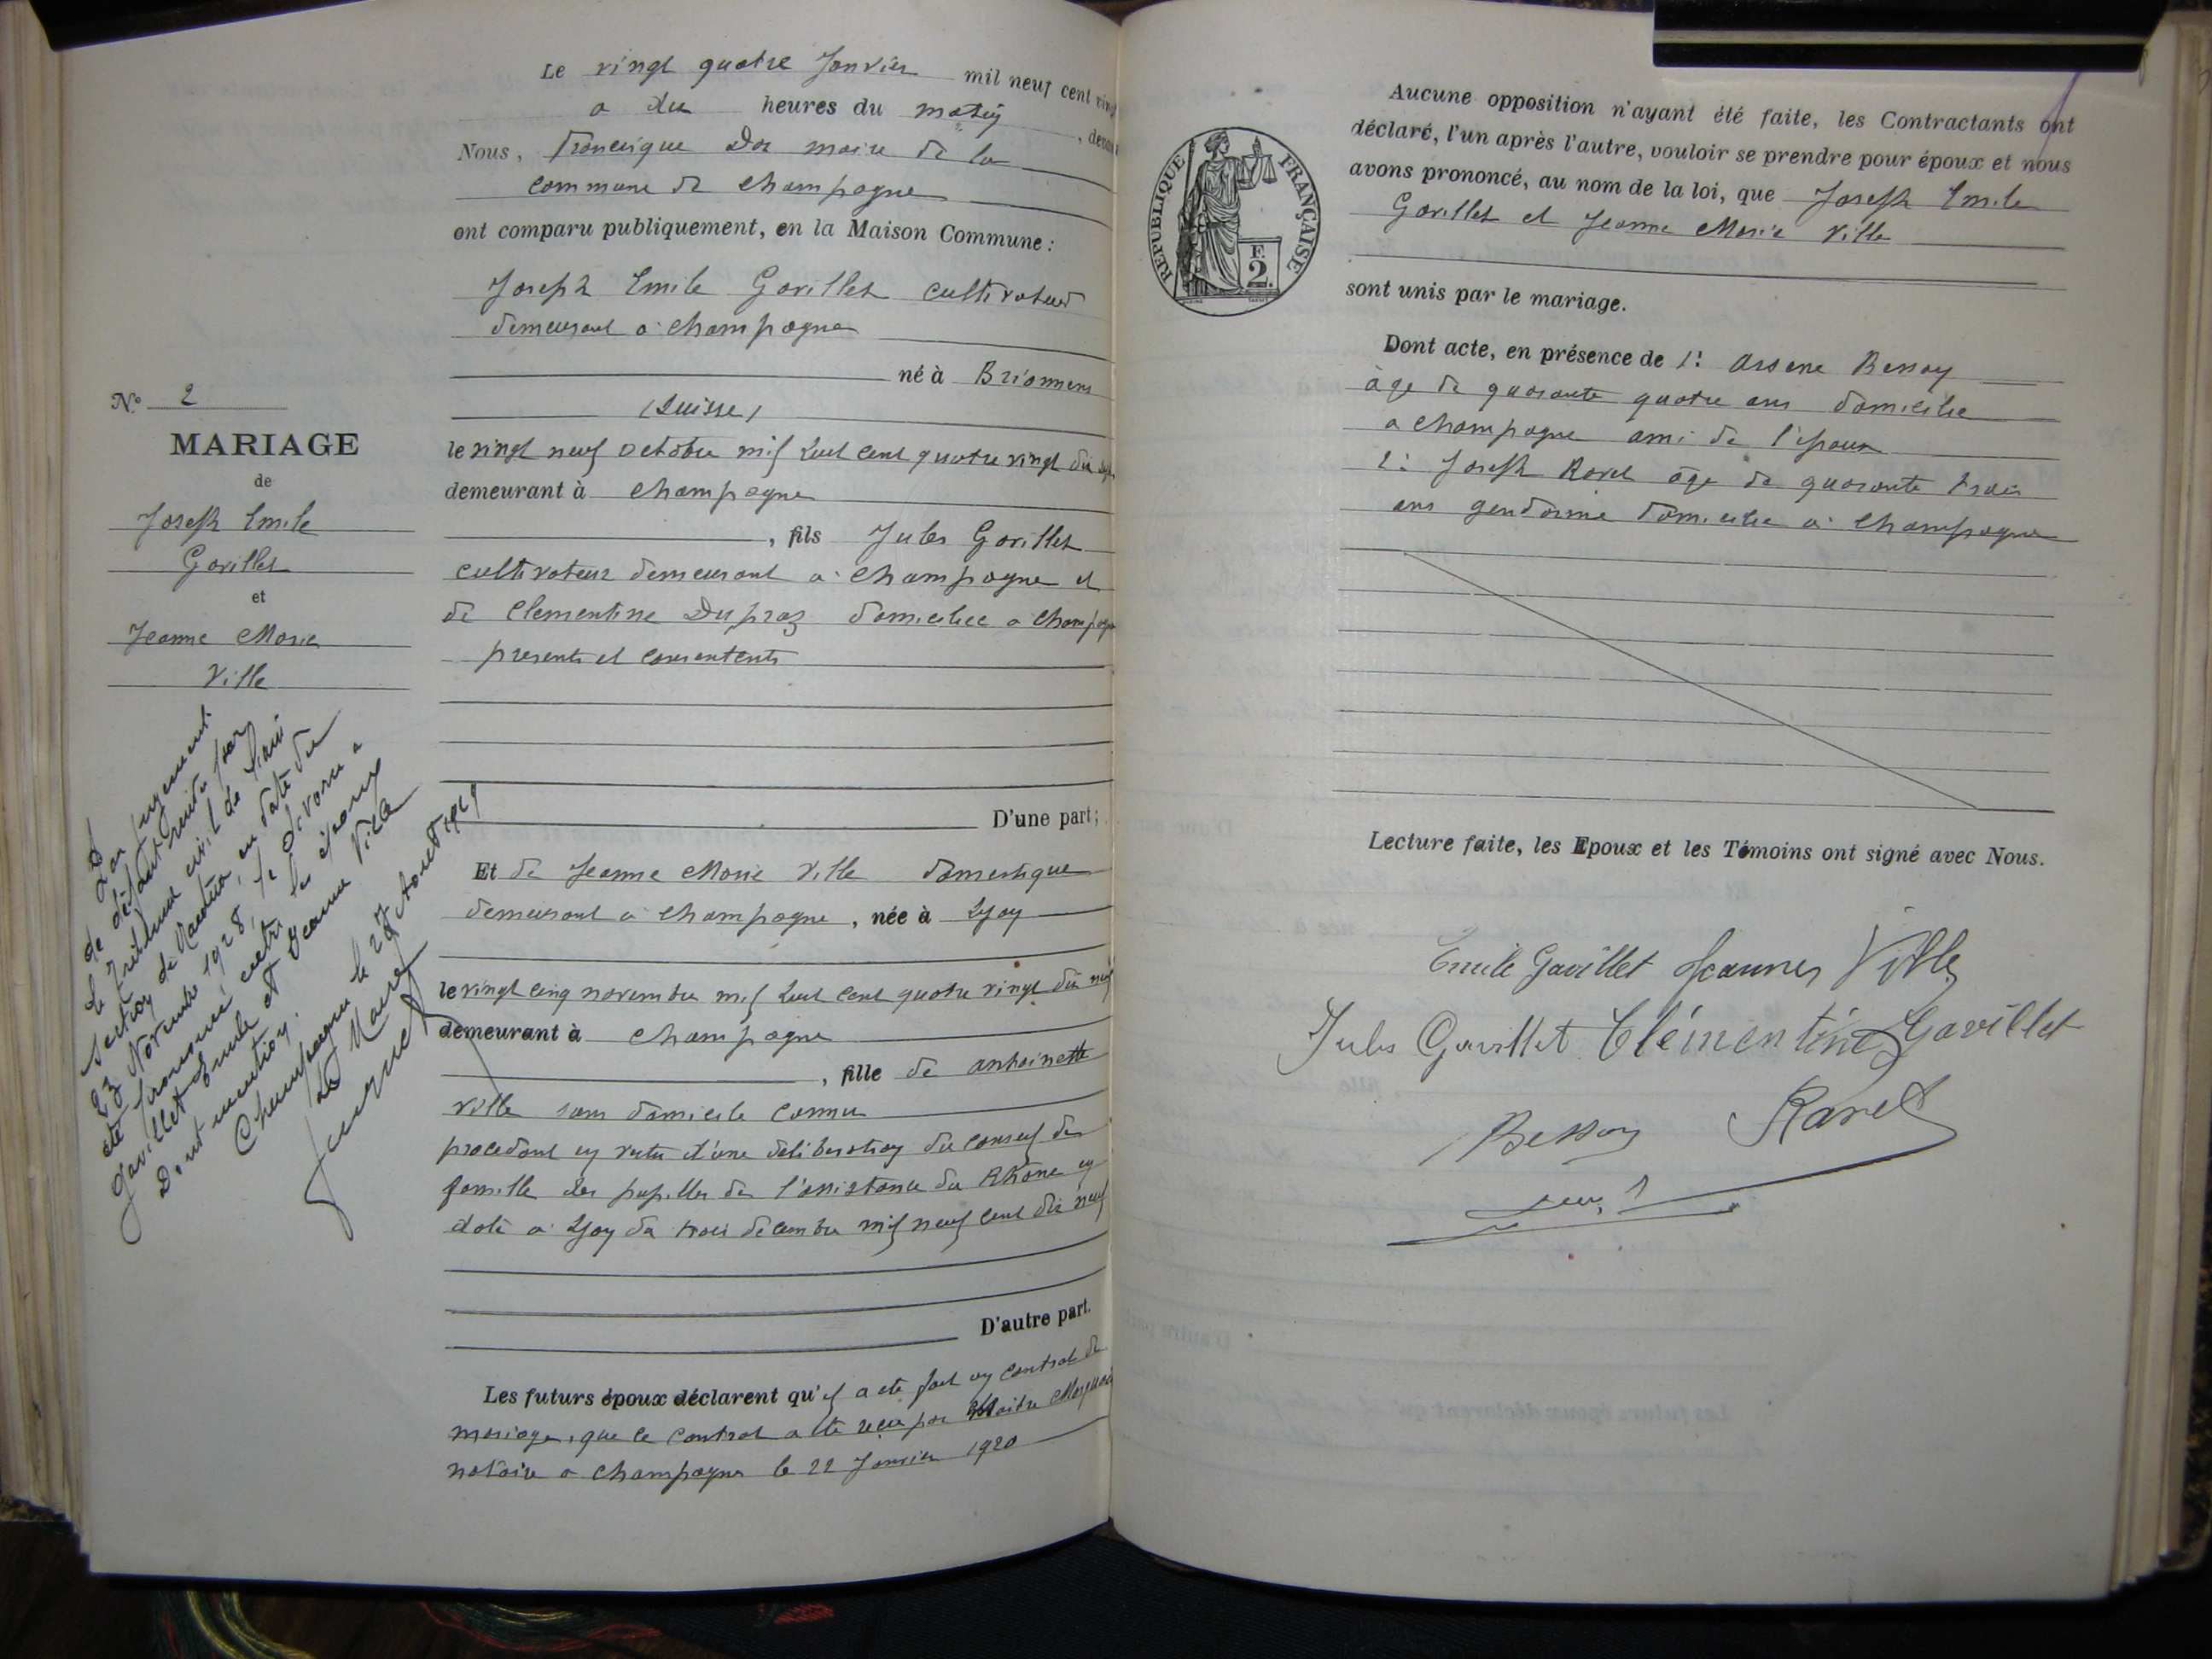 Le vingt quatre Janvier mil neuf cent vingt
a dix heures du matin, devant
Nous, Francisque Dor maire de la
commune de Champagne
ont comparu publiquement, en la Maison Commune :
Joseph Emile Gavillet cultivateur
demeurant à Champagne
né à Brionnens
(Suisse)
le vingt neuf octobre mil huit cent quatre vingt dix sept
demeurant à Champagne
, fils Jules Gavillet
cultivateur demeurant à Champagne et
de Clementine Dupraz domiciliee a Champagne
presents et consentents
D'une part;
Et de Jeanne Marie Ville domestique
demeurant à Champagne, née à Lyon
le vingt cinq novembre mil huit cent quatre vingt dix neuf
demeurant à Champagne
, fille de antoinette
Ville sans domicile connu
procedant en vertu d'une déliberation du conseil de
famille des pupilles de l'assistance du Rhône en
date à Lyon du trois décembre mil neuf cent dix neuf
D'autre part.
Les futurs époux déclarent qu'il a été fait un contrat de
mariage, que ce contrat a été reçu par Maitre
notaire a Champagne le 22 Janvier 1920
N.º 2
MARIAGE
de
Joseph Emile
Gavillet
et
Jeanne Marie
Ville
Par jugement
de défaut rendu par
le Tribunal civil de
section de Nantua, en date du
23 Novembre 1928, le divorce a
été prononcé, entre les époux
Gavillet Emile et Jeanne Ville
Dont mention.
Champagne le 27 Aout 1929
Le Maire,
REPUBLIQUE FRANÇAISE
F.
2.
Aucune opposition n'ayant été faite, les Contractants ont
déclaré, l'un après l'autre, vouloir se prendre pour époux et nous
avons prononcé, au nom de la loi, que Joseph Emile
Gavillet et Jeanne Marie Ville
sont unis par le mariage.
Dont acte, en présence de 1º Arsene Bessoy
âge de quarante quatre ans domicilie
a Champagne ami de l'époux
2º Joseph Ravel âge de quarante trois
ans gendarme domicilie à Champagne
Lecture faite, les Epoux et les Témoins ont signé avec Nous.
Emile Gavillet Jeanne Ville
Jules Gavillet Clémentine Gavillet
Bessoy Ravel